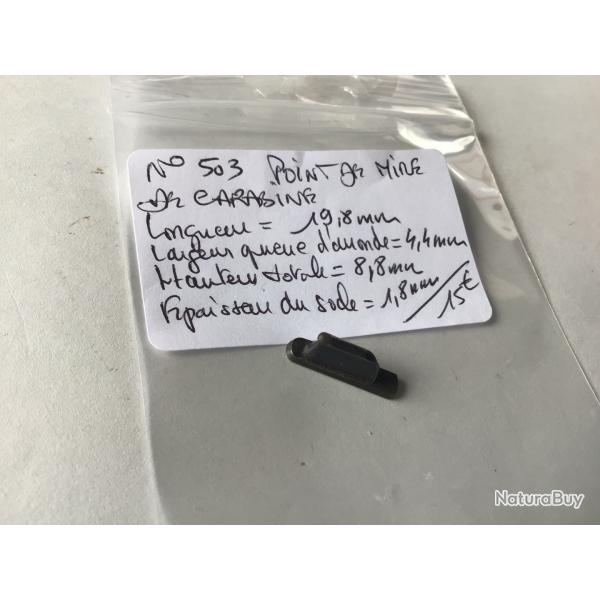 N° 503 POINT DE MIRE
DE CARABINE
Longueur = 19,8 mm
Largeur queue d'aronde = 4,4 mm
Hauteur totale = 8,8 mm
Epaisseur du socle = 1,8 mm / 15€
NaturaBuy